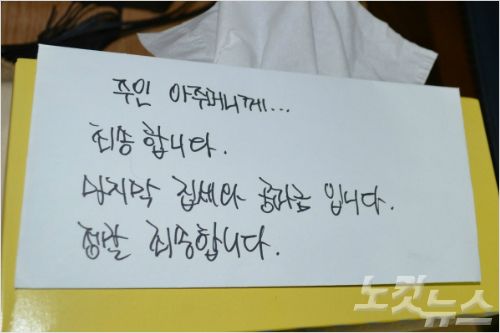 주인 아주머니께...
죄송합니다.
마지막 집세와 공과금 입니다.
정말 죄송합니다.
노컷뉴스